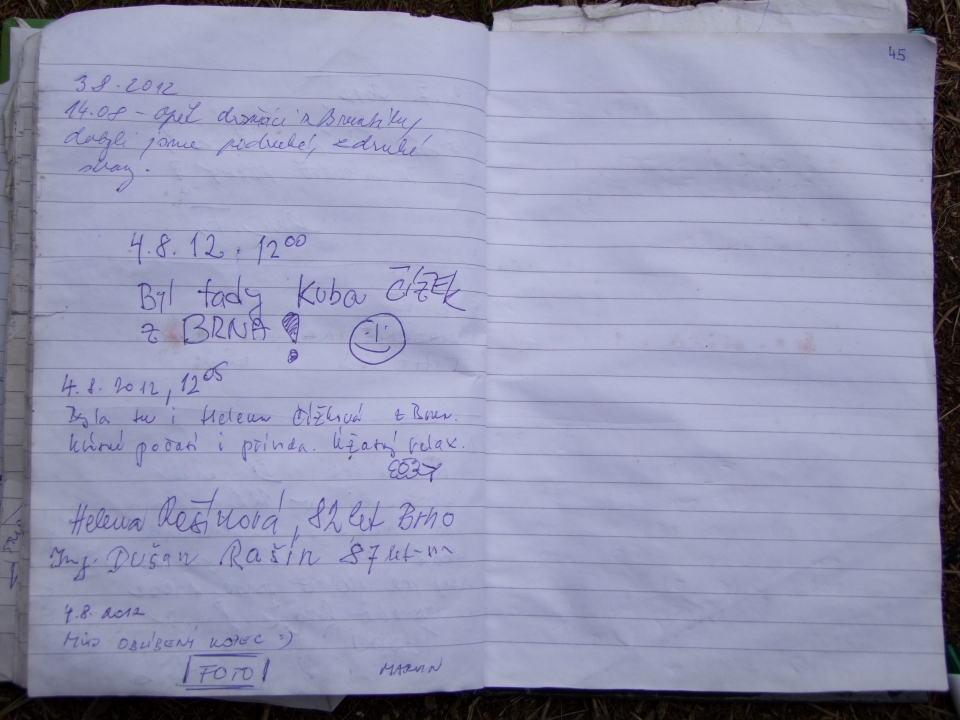 45
3.8.2012
14.08 - opět
jsme z druhé
4.8.12. 12 00
Byl tady Kuba ČÍŽEK
z BRNA!
4.8.2012, 12 05
Byla tu i Helena Čížková z Brna.
Krásné počasí i příroda. Úžasný relax.
Helena Rašínová, 82 let Brno
Ing. Dušan Rašín 87 let -"-
4.8.2012
MŮJ OBLÍBENÝ KOPEC :)
FOTO
MARVIN